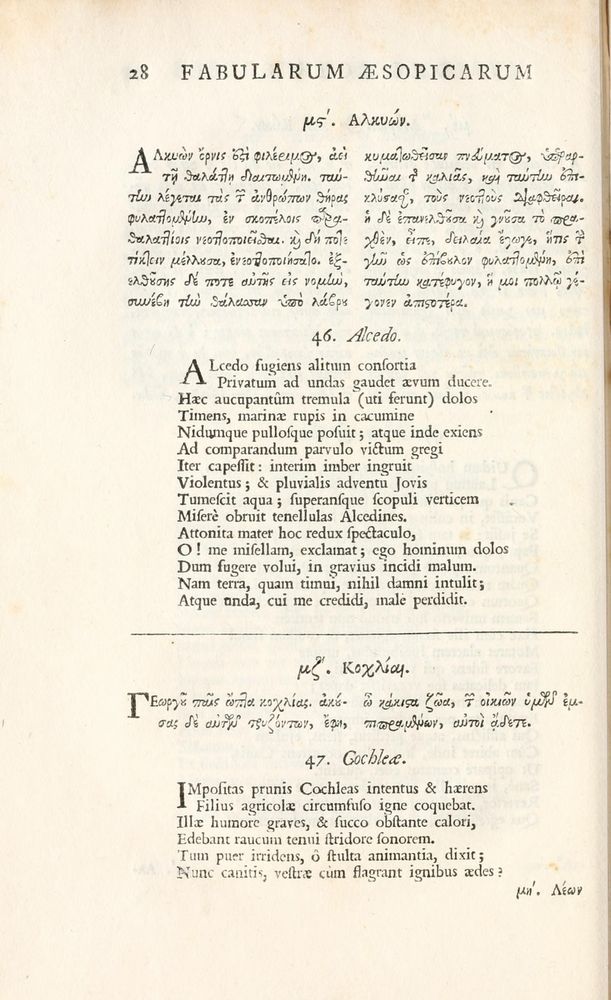 28 FABULARUM ÆSOPICARUM
μϛʹ. Αλκυών.
ΑΛκυὼν ὄρνις ἐστὶ φιλέρημος, ἀεὶ
τῇ θαλάττῃ διαιτωμένη. ταύ-
την λέγεται τὰς τ̃ ἀνθρώπων θήρας
φυλαττομένην, ἐν σκοπέλοις παρα-
θαλαττίοις νεοττοποιεῖσθαι. καὶ δή ποτε
τίκτειν μέλλουσα, ἐνεοττοποιήσατο. ἐξ-
ελθούσης δέ ποτε αὐτῆς εἰς νομὴν,
συνέβη τὴν θάλασσαν ὑπὸ λάβρου
κυματωθεῖσαν πνεύματος, ὑπεραρ-
θῆναι τ̃ καλιᾶς, καὶ ταύτην ἐπι-
κλύσασαν, τοὺς νεοττοὺς διαφθεῖραι.
ἡ δὲ ἐπανελθοῦσα καὶ γνοῦσα τὸ πρα-
χθὲν, εἶπε, δειλαία ἔγωγε, ἥτις τ̃
γῆν ὡς ἐπίβουλον φυλαττομένη, ἐπὶ
ταύτην κατέφυγον, ἥ μοι πολλῷ γέ-
γονεν ἀπιστοτέρα.
46. Alcedo.
ALcedo fugiens alitum consortia
Privatum ad undas gaudet ævum ducere.
Hæc aucupantûm tremula (uti ferunt) dolos
Timens, marinæ rupis in cacumine
Nidumque pullosque posuit; atque inde exiens
Ad comparandum parvulo victum gregi
Iter capessit: interim imber ingruit
Violentus; & pluvialis adventu Jovis
Tumescit aqua; superansque scopuli verticem
Miserè obruit tenellulas Alcedines.
Attonita mater hoc redux spectaculo,
O! me misellam, exclamat; ego hominum dolos
Dum fugere volui, in gravius incidi malum.
Nam terra, quam timui, nihil damni intulit;
Atque unda, cui me credidi, male perdidit.
μζʹ. Κοχλίαι.
ΓΕωργοῦ παῖς ὤπτα κοχλίας. ἀκού-
σας δὲ αὐτῶν τρυζόντων, ἔφη,
ὦ κάκιστα ζῶα, τ̃ οἰκιῶν ὑμῶν ἐμ-
πιπραμένων, αὐτοὶ ᾄδετε.
47. Cochleæ.
IMpositas prunis Cochleas intentus & hærens
Filius agricolæ circumfuso igne coquebat.
Illæ humore graves, & succo obstante calori,
Edebant raucum tenui stridore sonorem.
Tum puer irridens, ô stulta animantia, dixit;
Nunc canitis, vestræ cùm flagrant ignibus ædes?
μηʹ. Λέων